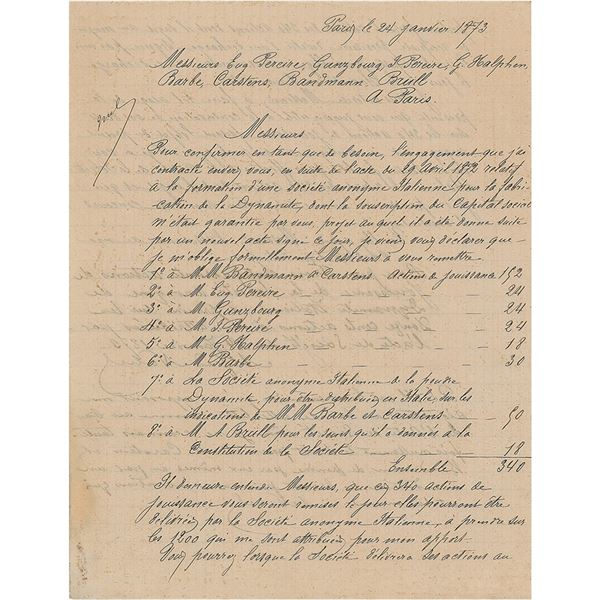 Paris le 24 janvier 1873
Messieurs Eug Pereire, Gunzbourg, I. Pereire, G. Halphen,
Barbe, Carstens, Bandmann Brüll
A Paris.
Messieurs
Pour confirmer en tant que de besoin, l'engagement que j'ai
contracté envers vous, en suite de l'acte du 29 avril 1872 relatif
à la formation d'une société anonyme Italienne pour la fabri-
cation de la Dynamite, dont la souscription du Capital social
m'était garantie par vous, projet auquel il a été donné suite
par un nouvel acte signé ce jour, je viens vous déclarer que
je m'oblige formellement Messieurs à vous remettre.
1° à M.M. Bandmann & Carstens. Actions de jouissance 152
2° à M Eug Pereire — — — 24
3° à M Gunzbourg — — — 24
4° à M I. Pereire — — — 24
5° à M G. Halphen — — — 18
6° à M Barbe — — — 30
7° à La Société anonyme Italienne de la poudre
Dynamite, pour être distribuées en Italie, sur les
indications de M.M. Barbe et Carstens — 50
8° à M. A Brüll pour les soins qu'il a donnés à la
Constitution de la Société — 18
Ensemble 340
Il demeure entendu Messieurs, que ces 340 actions de
jouissance vous seront remises le jour elles pourront être
délivrées par la Société anonyme Italienne, à prendre sur
les 1200 qui me sont attribuées pour mon apport.
Vous pourrez lorsque la Société délivrera ses actions au